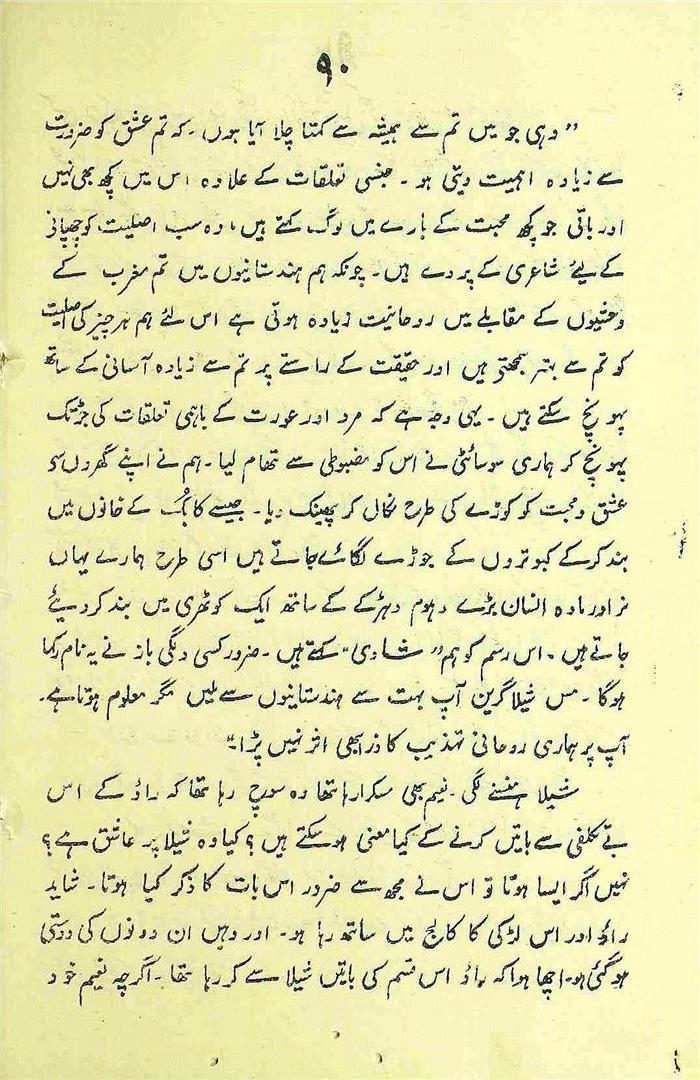 ۹۰
”وہی جو میں تم سے ہمیشہ سے کہتا چلا آیا ہوں۔ کہ تم عشق کو ضرورت
سے زیادہ اہمیت دیتی ہو۔ جنسی تعلقات کے علاوہ اس میں کچھ بھی نہیں
اور باقی جو کچھ محبت کے بارے میں لوگ کہتے ہیں، وہ سب اصلیت کو چھپانے
کے لیے شاعری کے پردے ہیں۔ چونکہ ہم ہندستانیوں میں تم مغرب کے
وحشیوں کے مقابلے میں روحانیت زیادہ ہوتی ہے اس لئے ہم ہر چیز کی اصلیت
کو تم سے بہتر سمجھتی ہیں اور حقیقت کے راستے پر تم سے زیادہ آسانی کے ساتھ
پہونچ سکتے ہیں۔ یہی وجہ ہے کہ مرد اور عورت کے باہمی تعلقات کی جڑ تک
پہونچ کر ہماری سوسائٹی نے اس کو مضبوطی سے تھام لیا۔ ہم نے اپنے گھروں سے
عشق و محبت کو کوڑے کی طرح نکال کر پھینک دیا۔ جیسے کابُک کے خانوں میں
بند کر کے کبوتروں کے جوڑے لگائے جاتے ہیں اسی طرح ہمارے یہاں
نر اور مادہ انسان بڑے دہوم دہڑکے کے ساتھ ایک کوٹھری میں بند کر دیئے
جاتے ہیں۔ اس رسم کو ہم ”شادی“ کہتے ہیں۔ ضرور کسی دلگی باز نے یہ نام رکھا
ہوگا۔ مس شیلا گرین آپ بہت سے ہندستانیوں سے ملیں مگر معلوم ہوتا ہے۔
آپ پر ہماری روحانی تہذیب کا ذرا بھی اثر نہیں پڑا۔“
شیلا ہنسنے لگی۔ نعیم بھی مسکرا رہا تھا وہ سوچ رہا تھا کہ راؤ کے اس
بے تکلفی سے باتیں کرنے کے کیا معنی ہو سکتے ہیں؟ کیا وہ شیلا پر عاشق ہے؟
نہیں اگر ایسا ہوتا تو اس نے مجھ سے ضرور اس بات کا ذکر کیا ہوتا۔ شاید
راؤ اور اس لڑکی کا کالج میں ساتھ رہا ہو۔ اور وہیں ان دونوں کی دوستی
ہو گئی ہو۔ اچھا ہوا کہ راؤ اس قسم کی باتیں شیلا سے کر رہا تھا۔ اگرچہ نعیم خود